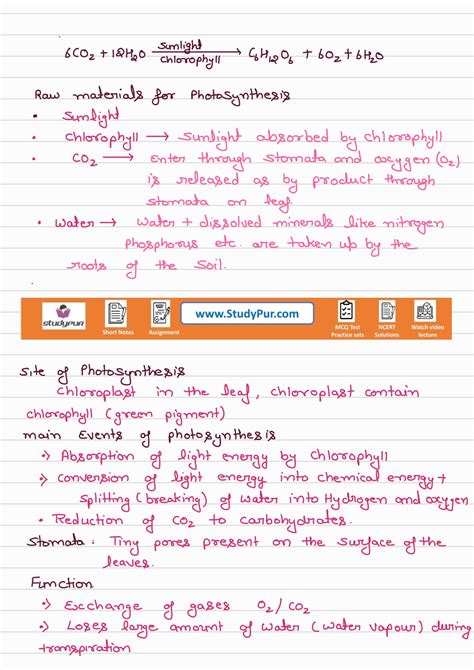 6CO2 + 12H2O —Sunlight/Chlorophyll→ C6H12O6 + 6O2 + 6H2O
Raw materials for Photosynthesis
• Sunlight
• Chlorophyll → Sunlight absorbed by Chlorophyll
• CO2 → Enter through Stomata and oxygen (O2)
is released as by product through
stomata on leaf.
• Water → Water + dissolved minerals like nitrogen
phosphorus etc. are taken up by the
roots of the Soil.
studypur
Short Notes
Assignment
www.StudyPur.com
MCQ Test
Practice sets
NCERT
Solutions
Watch video
lecture
Site of Photosynthesis
Chloroplast in the leaf, chloroplast contain
chlorophyll (green pigment)
main Events of photosynthesis
•) Absorption of light energy by Chlorophyll
•) conversion of light energy into chemical energy +
splitting (breaking) of water into Hydrogen and oxygen
• Reduction of CO2 to carbohydrates.
Stomata : Tiny pores present on the surface of the
leaves.
Function
•) Exchange of gases O2/CO2
•) Loses large amount of water (water vapour) during
transpiration